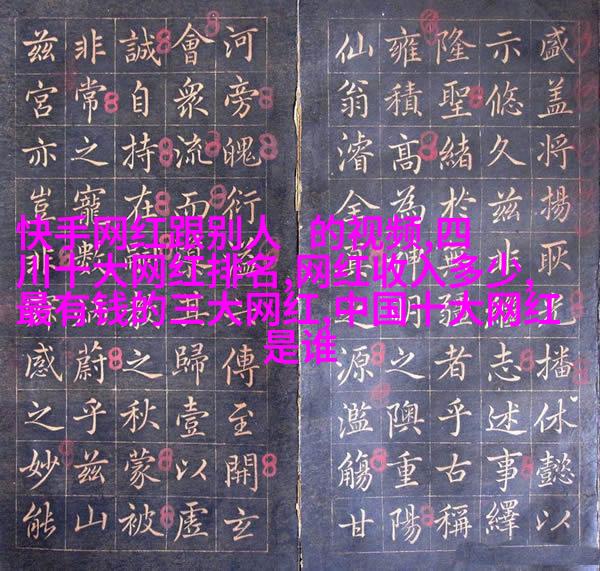 快手网红跟别人 的视频,四
川十大网红排名,网红收入多少,
最有钱的三大网红,中国十大网红
是谁
盛盖将揚耿播休懿以
示悠久兹非志述事繹
隆聖緒於者乎古稱
雍積高為之隩重陽
仙翁濬全源濫觴甘
河旁魄衍溢傳至開玄
會衆流而歸壹以虛
誠自持在之秋蒙被
非常之寵數蔚乎兹山
兹宮亦豈非感之妙能